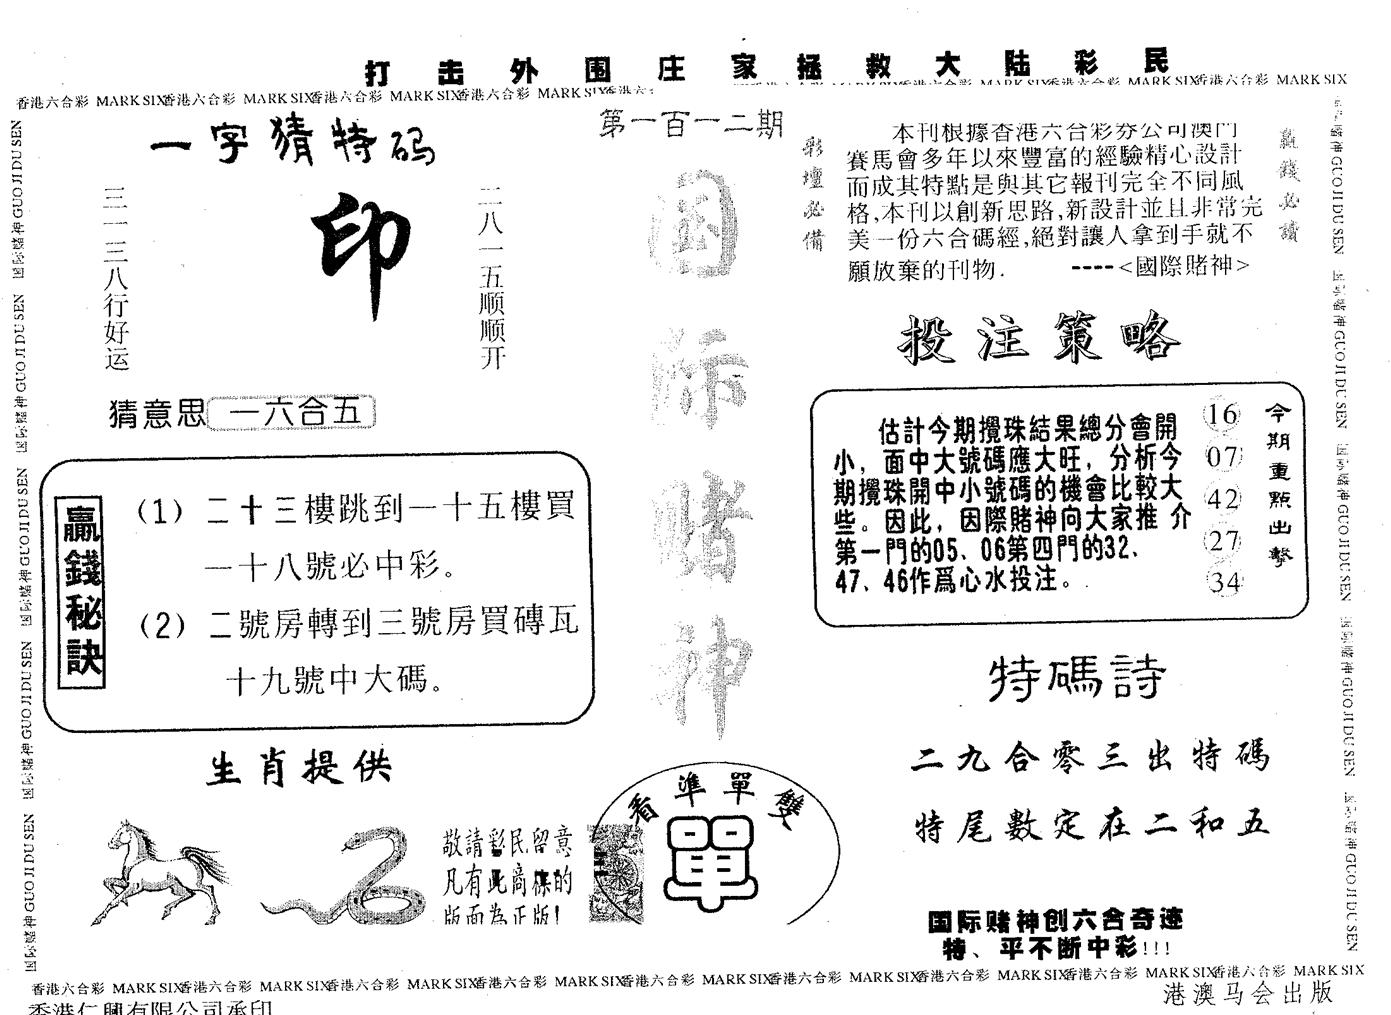 打击外围庄家拯救大陆彩民
香港六合彩 MARK SIX香港六合彩 MARK SIX香港六合彩 MARK SIX香港六合彩 MARK SIX香港六合彩 MARK SIX香港六合彩 MARK SIX香港六合彩 MARK SIX香港六合彩 MARK SIX香港六合彩 MARK SIX
第一百一二期
一字猜特码
三一三八行好运
印
二八一五顺顺开
猜意思 一六合五
贏錢秘訣
(1) 二十三樓跳到一十五樓買
一十八號必中彩。
(2) 二號房轉到三號房買磚瓦
十九號中大碼。
生肖提供
敬請彩民留意
凡有此商標的
版面為正版!
国际赌神
看準單雙
單
彩壇必備
本刊根據香港六合彩券公司澳門
賽馬會多年以來豐富的經驗精心設計
而成其特點是與其它報刊完全不同風
格,本刊以創新思路,新設計並且非常完
美一份六合碼經,絕對讓人拿到手就不
願放棄的刊物. ----<國際賭神>
贏錢必讀
投注策略
估計今期攪珠結果總分會開
小，面中大號碼應大旺，分析今
期攪珠開中小號碼的機會比較大
些。因此，因際賭神向大家推 介
第一門的05、06第四門的32、
47、46作爲心水投注。
16
07
42
27
34
今期重點出擊
特碼詩
二九合零三出特碼
特尾數定在二和五
国际赌神创六合奇迹
特、平不断中彩!!!
国际赌神 GUO JI DU SEN 国际赌神 GUO JI DU SEN 国际赌神 GUO JI DU SEN 国际赌神 GUO JI DU SEN 国际赌神 GUO JI DU SEN
国际赌神 GUO JI DU SEN 国际赌神 GUO JI DU SEN 国际赌神 GUO JI DU SEN 国际赌神 GUO JI DU SEN 国际赌神 GUO JI DU SEN
香港六合彩 MARK SIX香港六合彩 MARK SIX香港六合彩 MARK SIX香港六合彩 MARK SIX香港六合彩 MARK SIX香港六合彩 MARK SIX香港六合彩 MARK SIX香港六合彩 MARK SIX香港六合彩 MARK SIX
香港仁興有限公司承印
港澳马会出版